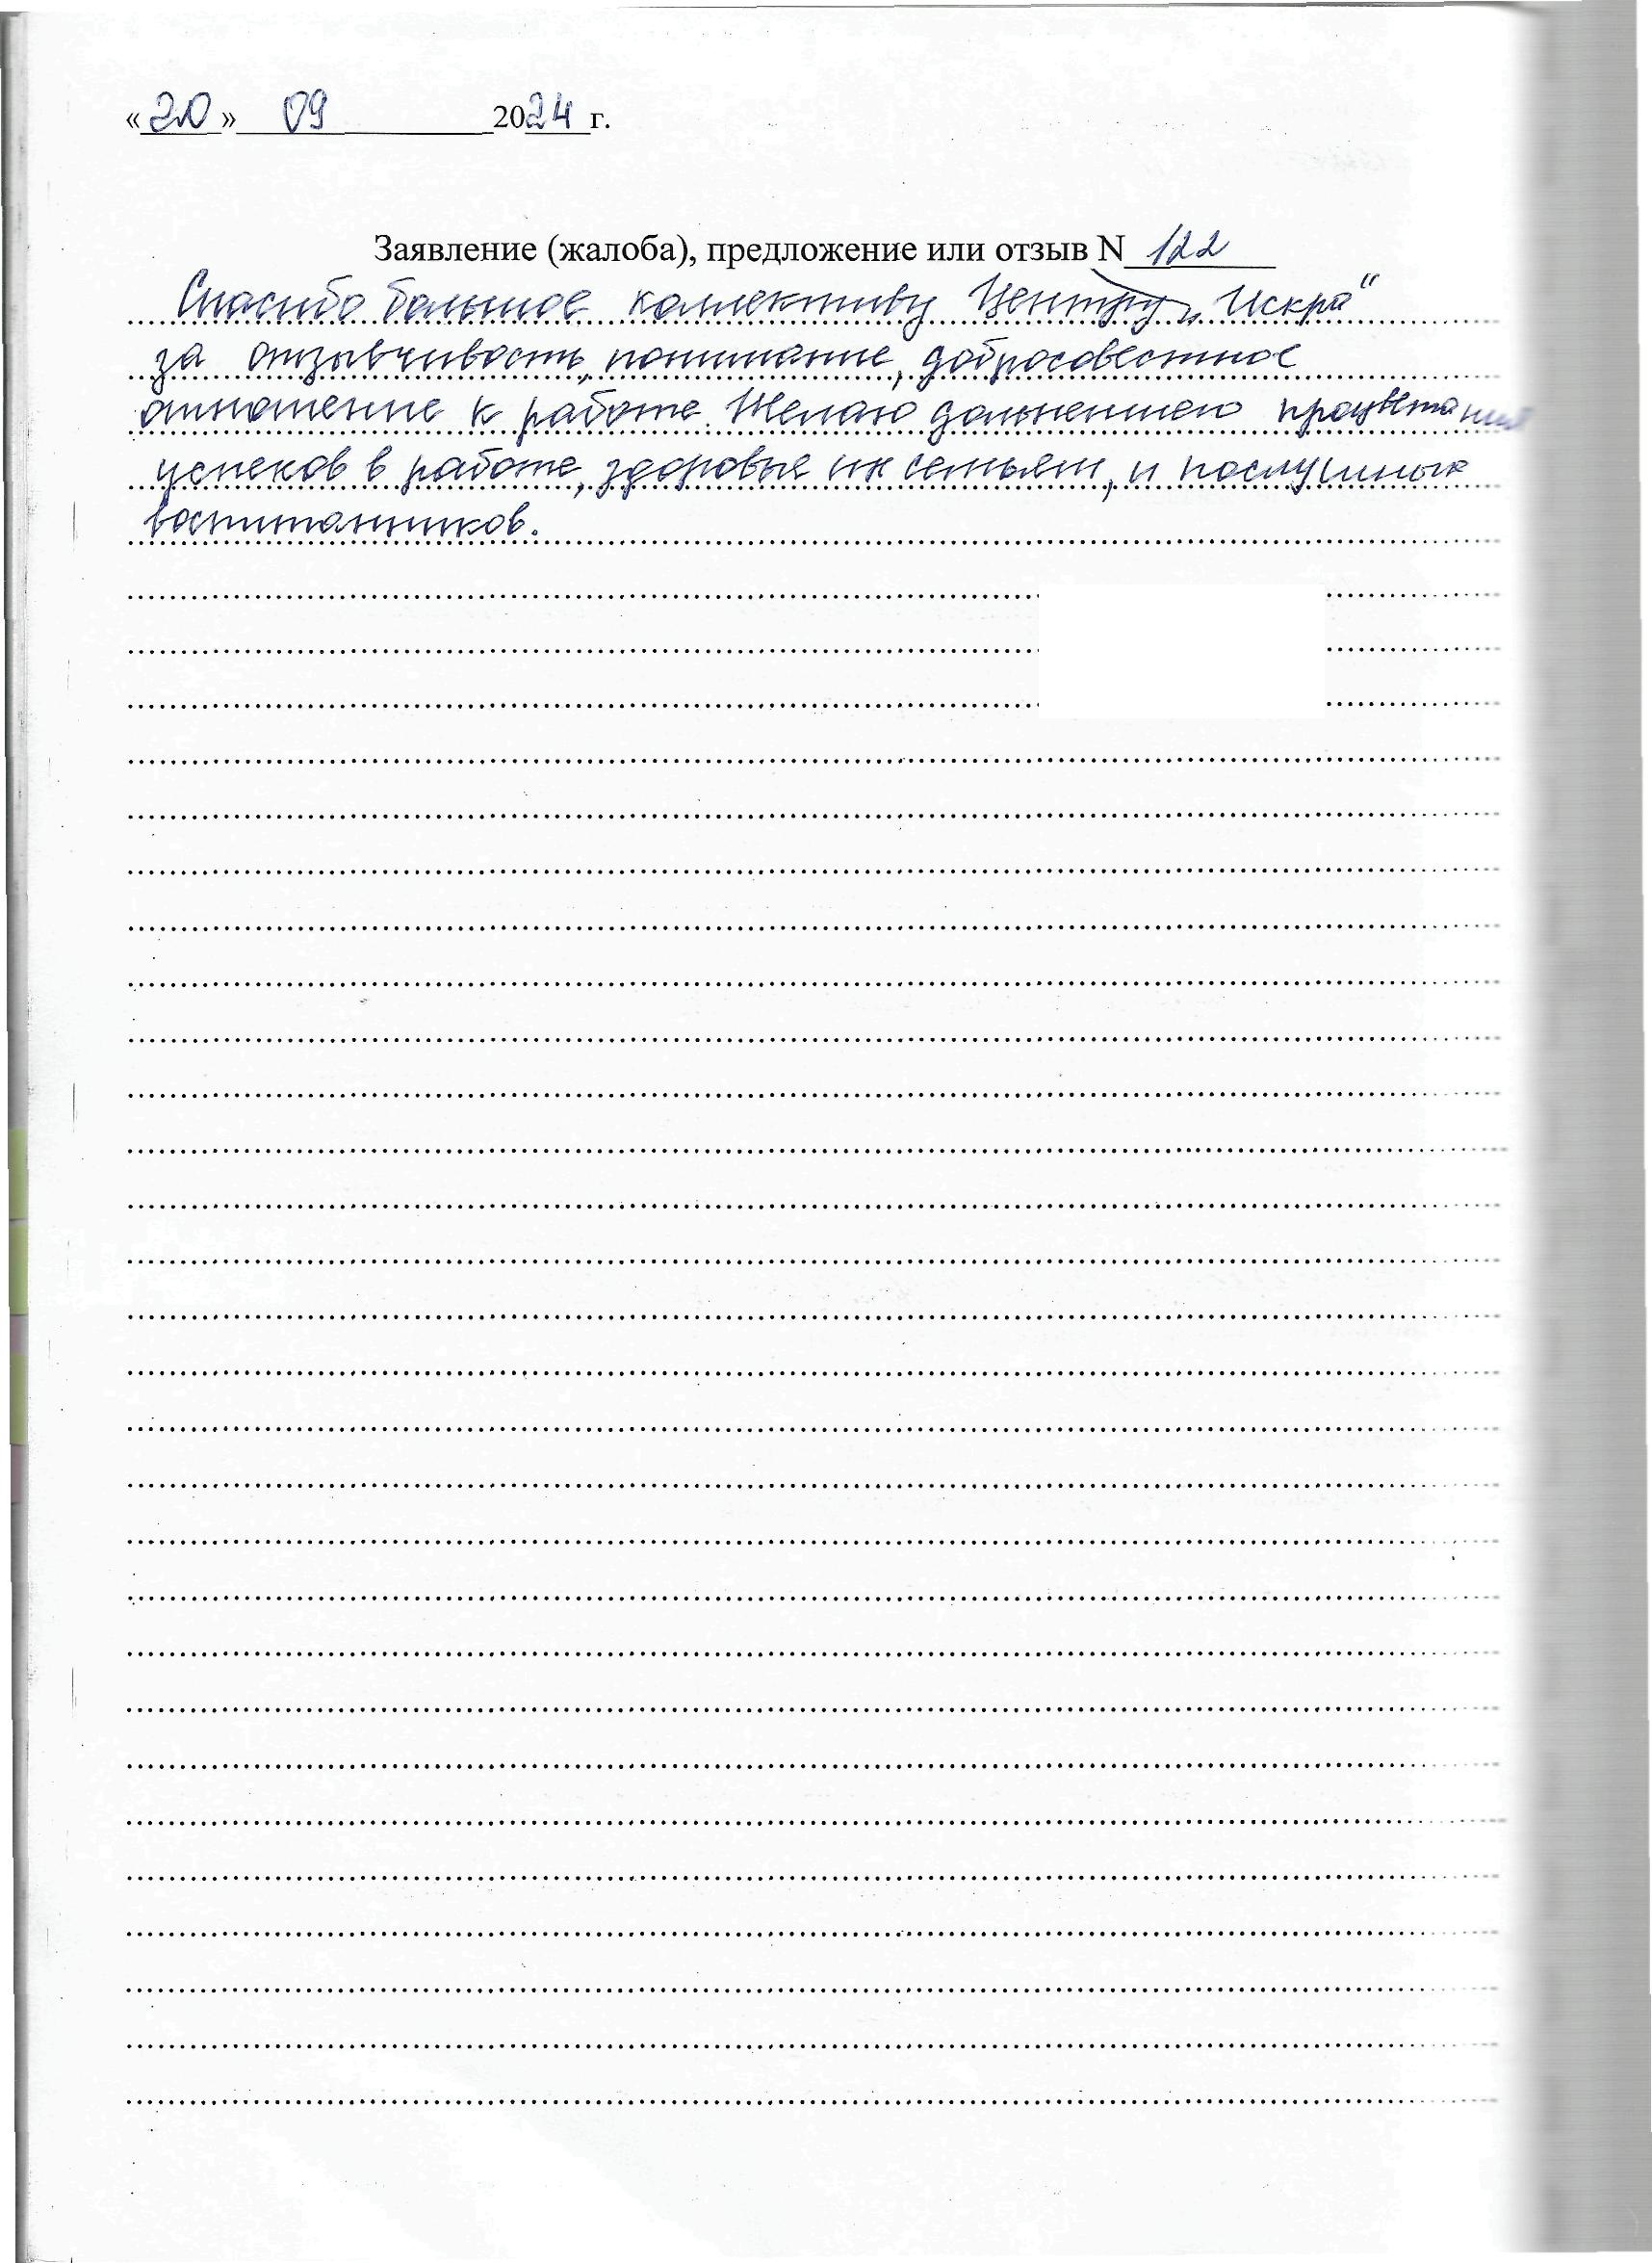 «20» 09 2024 г.
Заявление (жалоба), предложение или отзыв N 122
Спасибо большое коллективу Центру „Искра“
за отзывчивость, понимание, добросовестное
отношение к работе. Желаю дальнейшего процветания
успеков в работе, здоровье их семьям, и послушных
воспитанников.